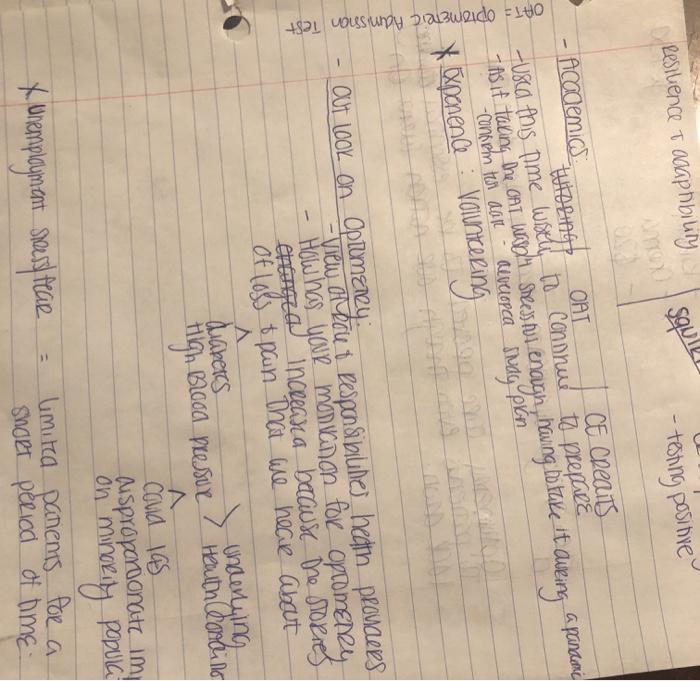 resilience & adaptability
- testing positive
- Academics: tutoring / OAT / CE Credits
- Used this time wisely to continue to prepare
- As if taking the OAT wasn't stressful enough, having to take it during a pandemic
- developed study plan
* Experience: Volunteering
OAT = Optometric Admission Test
- Outlook on Optometry:
- View of role & responsibilities health providers
- How has your motivation for optometry
increased because the stories
of loss & pain that we hear about
^
diabetes
High Blood pressure > underlying
Health Conditions
^
Covid has
disproportionate im
on minority popula
* unemployment stress/fear = limited patients for a
short period of time.